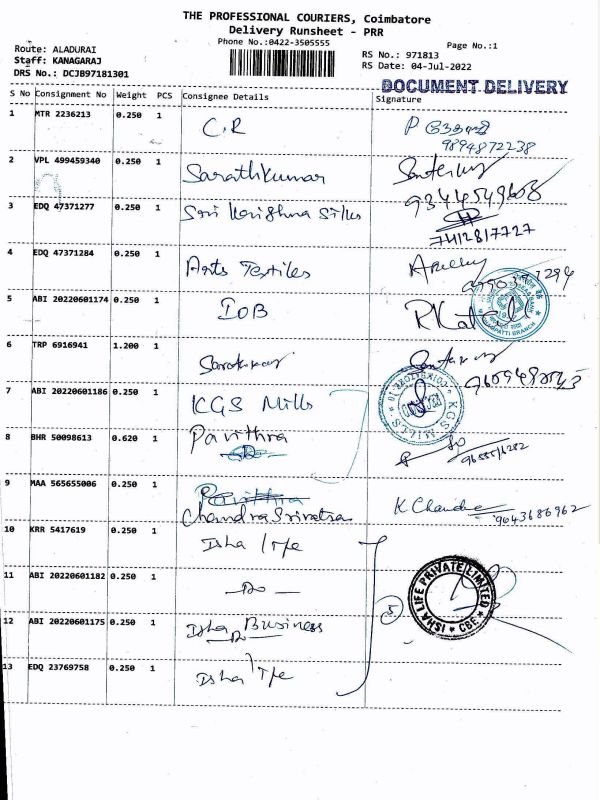 THE PROFESSIONAL COURIERS, Coimbatore
Delivery Runsheet - PRR
Phone No.:0422-3505555
Page No.:1
Route: ALADURAI
Staff: KANAGARAJ
DRS No.: DCJB97181301
RS No.: 971813
RS Date: 04-Jul-2022
DOCUMENT DELIVERY
S No Consignment No Weight PCS Consignee Details Signature
1 MTR 2236213 0.250 1 C.R P
9894872238
2 VPL 499459340 0.250 1 Sarathkumar
9344549608
3 EDQ 47371277 0.250 1 Sri Krishna Silks
7412817727
4 EDQ 47371284 0.250 1 Arts Textiles
5 ABI 20220601174 0.250 1 IOB
6 TRP 6916941 1.200 1
7 ABI 20220601186 0.250 1 KGS Mills
K.G.S. MILLS
8 BHR 50098613 0.620 1 Pavithra
9 MAA 565655006 0.250 1 Pavithra
Chandra K Chandra
9643686962
10 KRR 5417619 0.250 1 Isha life
11 ABI 20220601182 0.250 1 — Do —
12 ABI 20220601175 0.250 1 Isha Business
Do
5
ISHA LIFE PRIVATE LIMITED
CBE
13 EDQ 23769758 0.250 1 Isha life